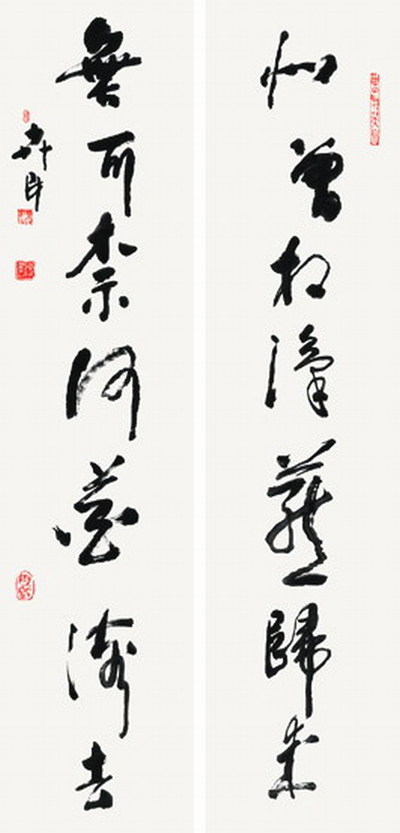 似曾相識燕歸來
無可柰何花落去